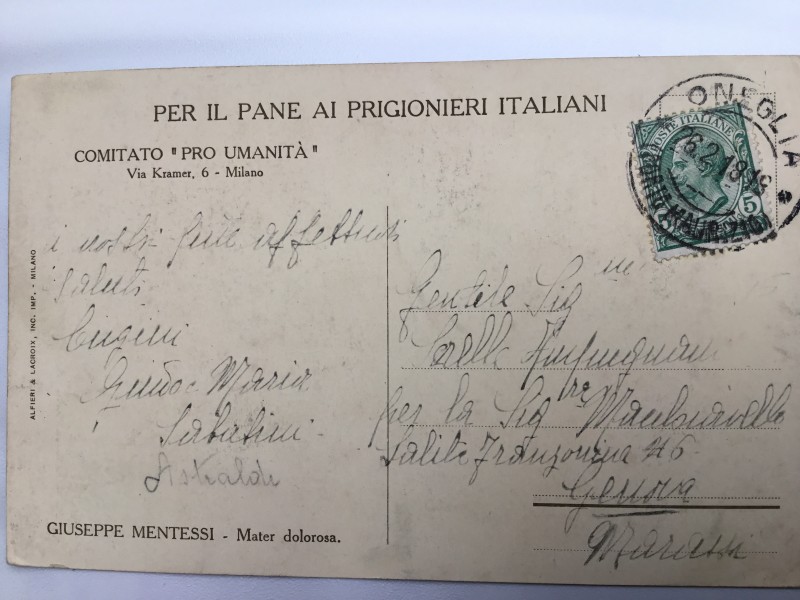 PER IL PANE AI PRIGIONIERI ITALIANI
COMITATO "PRO UMANITÀ"
Via Kramer, 6 - Milano
ALFIERI & LACROIX, INC. IMP. - MILANO
i nostri più affettuosi
saluti
Cugini
Maria
Sabatini
Astraldi
GIUSEPPE MENTESSI - Mater dolorosa.
ONEGLIA
POSTE ITALIANE
5
Gentile Sig
per la Sig.ra
Salita Franzonina 46
Genova
Marassi